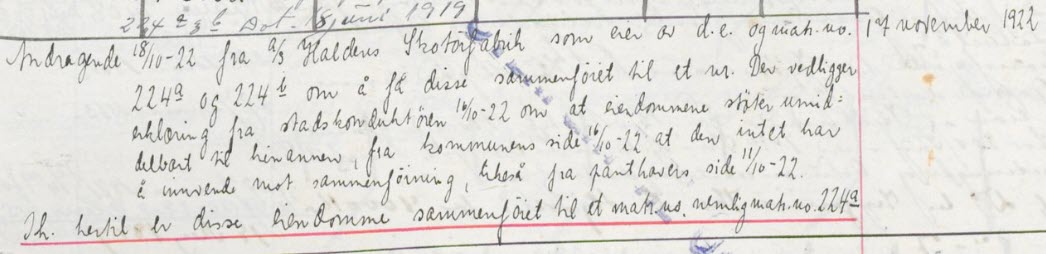 224 a & b Dat. 18 juni 1919
Andragende 18/10-22 fra A/S Haldens Skotöifabrik som eier av d.e. og matr.no. 17 november 1922
224a og 224b om å få disse sammenföiet til et nr. Der vedligger
erklæring fra stadskonduktören 16/10-22 om at eiendommene stöter umid-
delbart til hinannen, fra kommunens side 16/10-22 at den intet har
å innvende mot sammenföining, likeså fra panthavers side 11/10-22.
Ih. hertil er disse eiendomme sammenföiet til et matr.no. nemlig matr.no. 224a